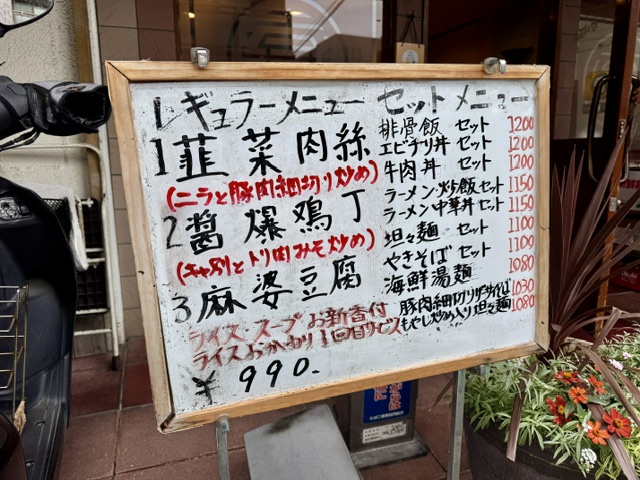 レギュラーメニュー
1 韮菜肉絲
(ニラと豚肉細切り炒め)
2 醤爆鶏丁
(キャベツとトリ肉みそ炒め)
3 麻婆豆腐
ライス スープ お新香付
ライスおかわり1回目サービス
¥990.
セットメニュー
排骨飯 セット 1200
エビチリ丼 セット 1200
牛肉丼 セット 1200
ラーメン・炒飯セット 1150
ラーメン中華丼セット 1150
坦々麺 セット 1100
やきそば セット 1100
海鮮湯麺 1080
豚肉細切り 1030
もやし炒め入り坦々麺 1080